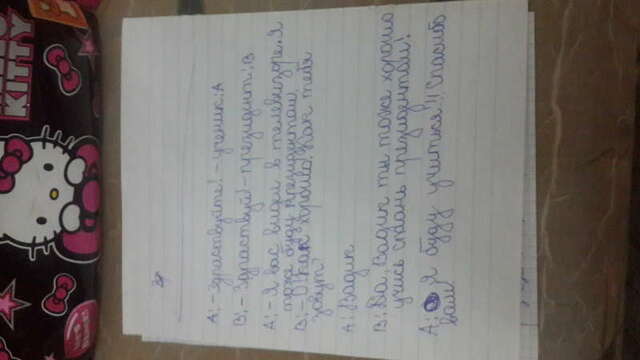 KITTY
А: – Здраствуйте! – ученик: А
В: – Здраствуй! – президинт: В
А: – Я вас видел в телевизоре. Я
тоже буду президентом.
В: – О как хорошо. Как тебя
зовут?
А: Вадик
В: Да, Вадик ты тоже хорошо
учись стань президентом!
А: Я буду учиться!! Спасибо
вам